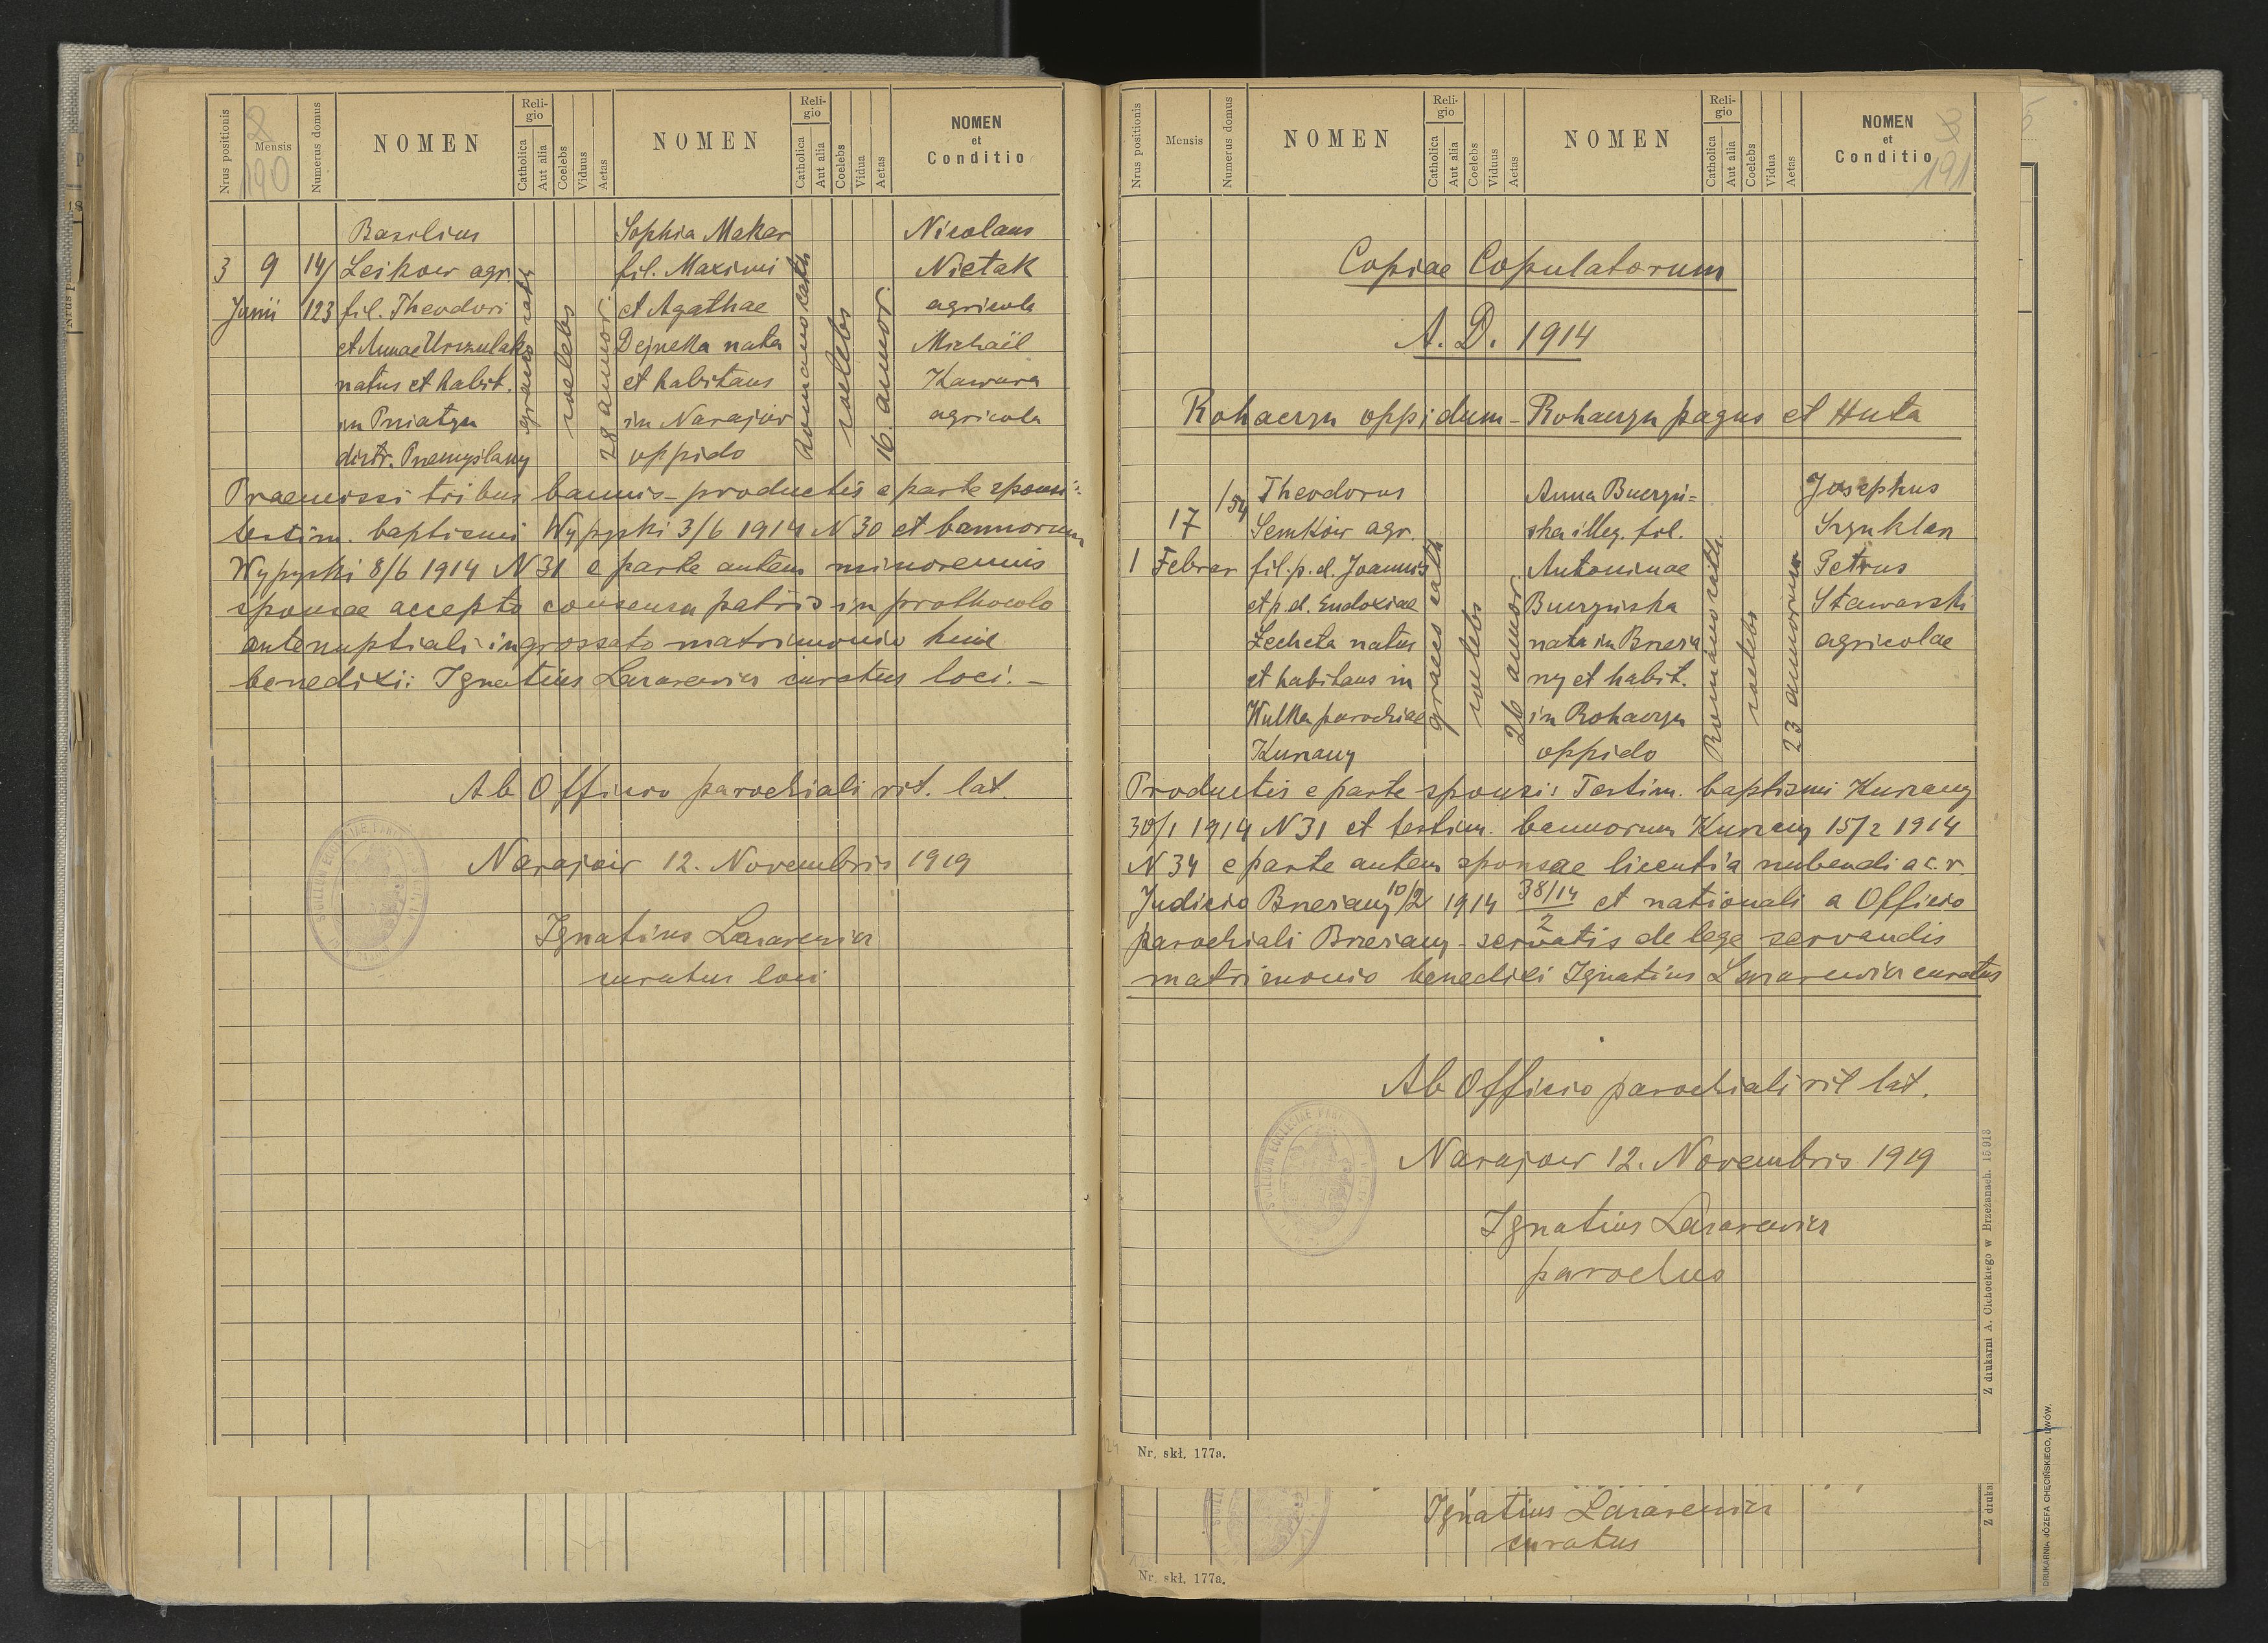 2
190
Nrus positionis
Mensis
Numerus domus
NOMEN
Religio
Catholica
Aut alia
Coelebs
Viduus
Aetas
NOMEN
Religio
Catholica
Aut alia
Coelebs
Vidua
Aetas
NOMEN
et
Conditio
3 9 Junii
14/123
Basilius
Leikow agr.
fil. Theodori
et Annae Urszulak
natus et habit.
in Pniatyn
distr. Przemyślany
graeco cath
coelebs
28 annor.
Sophia Makar
fil. Maximi
et Agathae
Dejneka nata
et habitans
in Narajów
oppido
Romano cath
coelebs
16. annor.
Nicolaus
Nietak
agricola
Michaël
Kawura
agricola
Praemissi tribus bannis – productis e parte sponsi:
testim. baptismi Wypyski 3/6 1914 N 30 et bannorum
Wypyski 8/6 1914 N 31 e parte autem minorennis
sponsae accepto consensu patris in prothocolo
antenuptiali ingrossato matrimonio huic
benedixi: Ignatius Lazarewicz curatus loci. –
Ab Officio parochiali rit. lat.
Narajów 12. Novembris 1919
Ignatius Lazarewicz
curatus loci
3
191
Nrus positionis
Mensis
Numerus domus
NOMEN
Religio
Catholica
Aut alia
Coelebs
Viduus
Aetas
NOMEN
Religio
Catholica
Aut alia
Coelebs
Vidua
Aetas
NOMEN
et
Conditio
Copiae Copulatorum
A. D. 1914
Rohaczyn oppidum – Rohaczyn pagus et Huta
1
17
Febrar
/54
Theodorus
Semków agr.
fil. p. d. Joannis
et p. d. Eudoxiae
Lecheta natus
et habitans in
Kulka parochiae
Kurzany
graeco cath
coelebs
26 annor.
Anna Buczyń-
ska illeg. fil.
Antoninae
Buczyńska
nata in Brzeża
ny et habit.
in Rohaczyn
oppido
Romano cath.
coelebs
23 annorum
Josephus
Szynklan
Petrus
Stawarski
agricolae
Productis e parte sponsi: Testim. baptismi Kurzany
30/1 1914 N 31 et testim. bannorum Kurzany 15/2 1914
N 34 e parte autem sponsae licentia nubendi a c. r.
Judicio Brzeżany 10/2 1914 38/14/2 et nationali a Officio
parochiali Brzeżany – servatis de lege servandis
matrimonio benedixi Ignatius Lazarewicz curatus
Ab Officio parochiali rit lat.
Narajow 12. Novembris 1919
Ignatius Lazarewicz
parochus
Z drukarni A. Cichockiego w Brzeżanach. 15913
Nr. skł. 177a.
Ignatius Lazarewicz
curatus
Z druka
Nr. skł. 177a.
DRUKARNIA JÓZEFA CHĘCIŃSKIEGO, LWÓW.